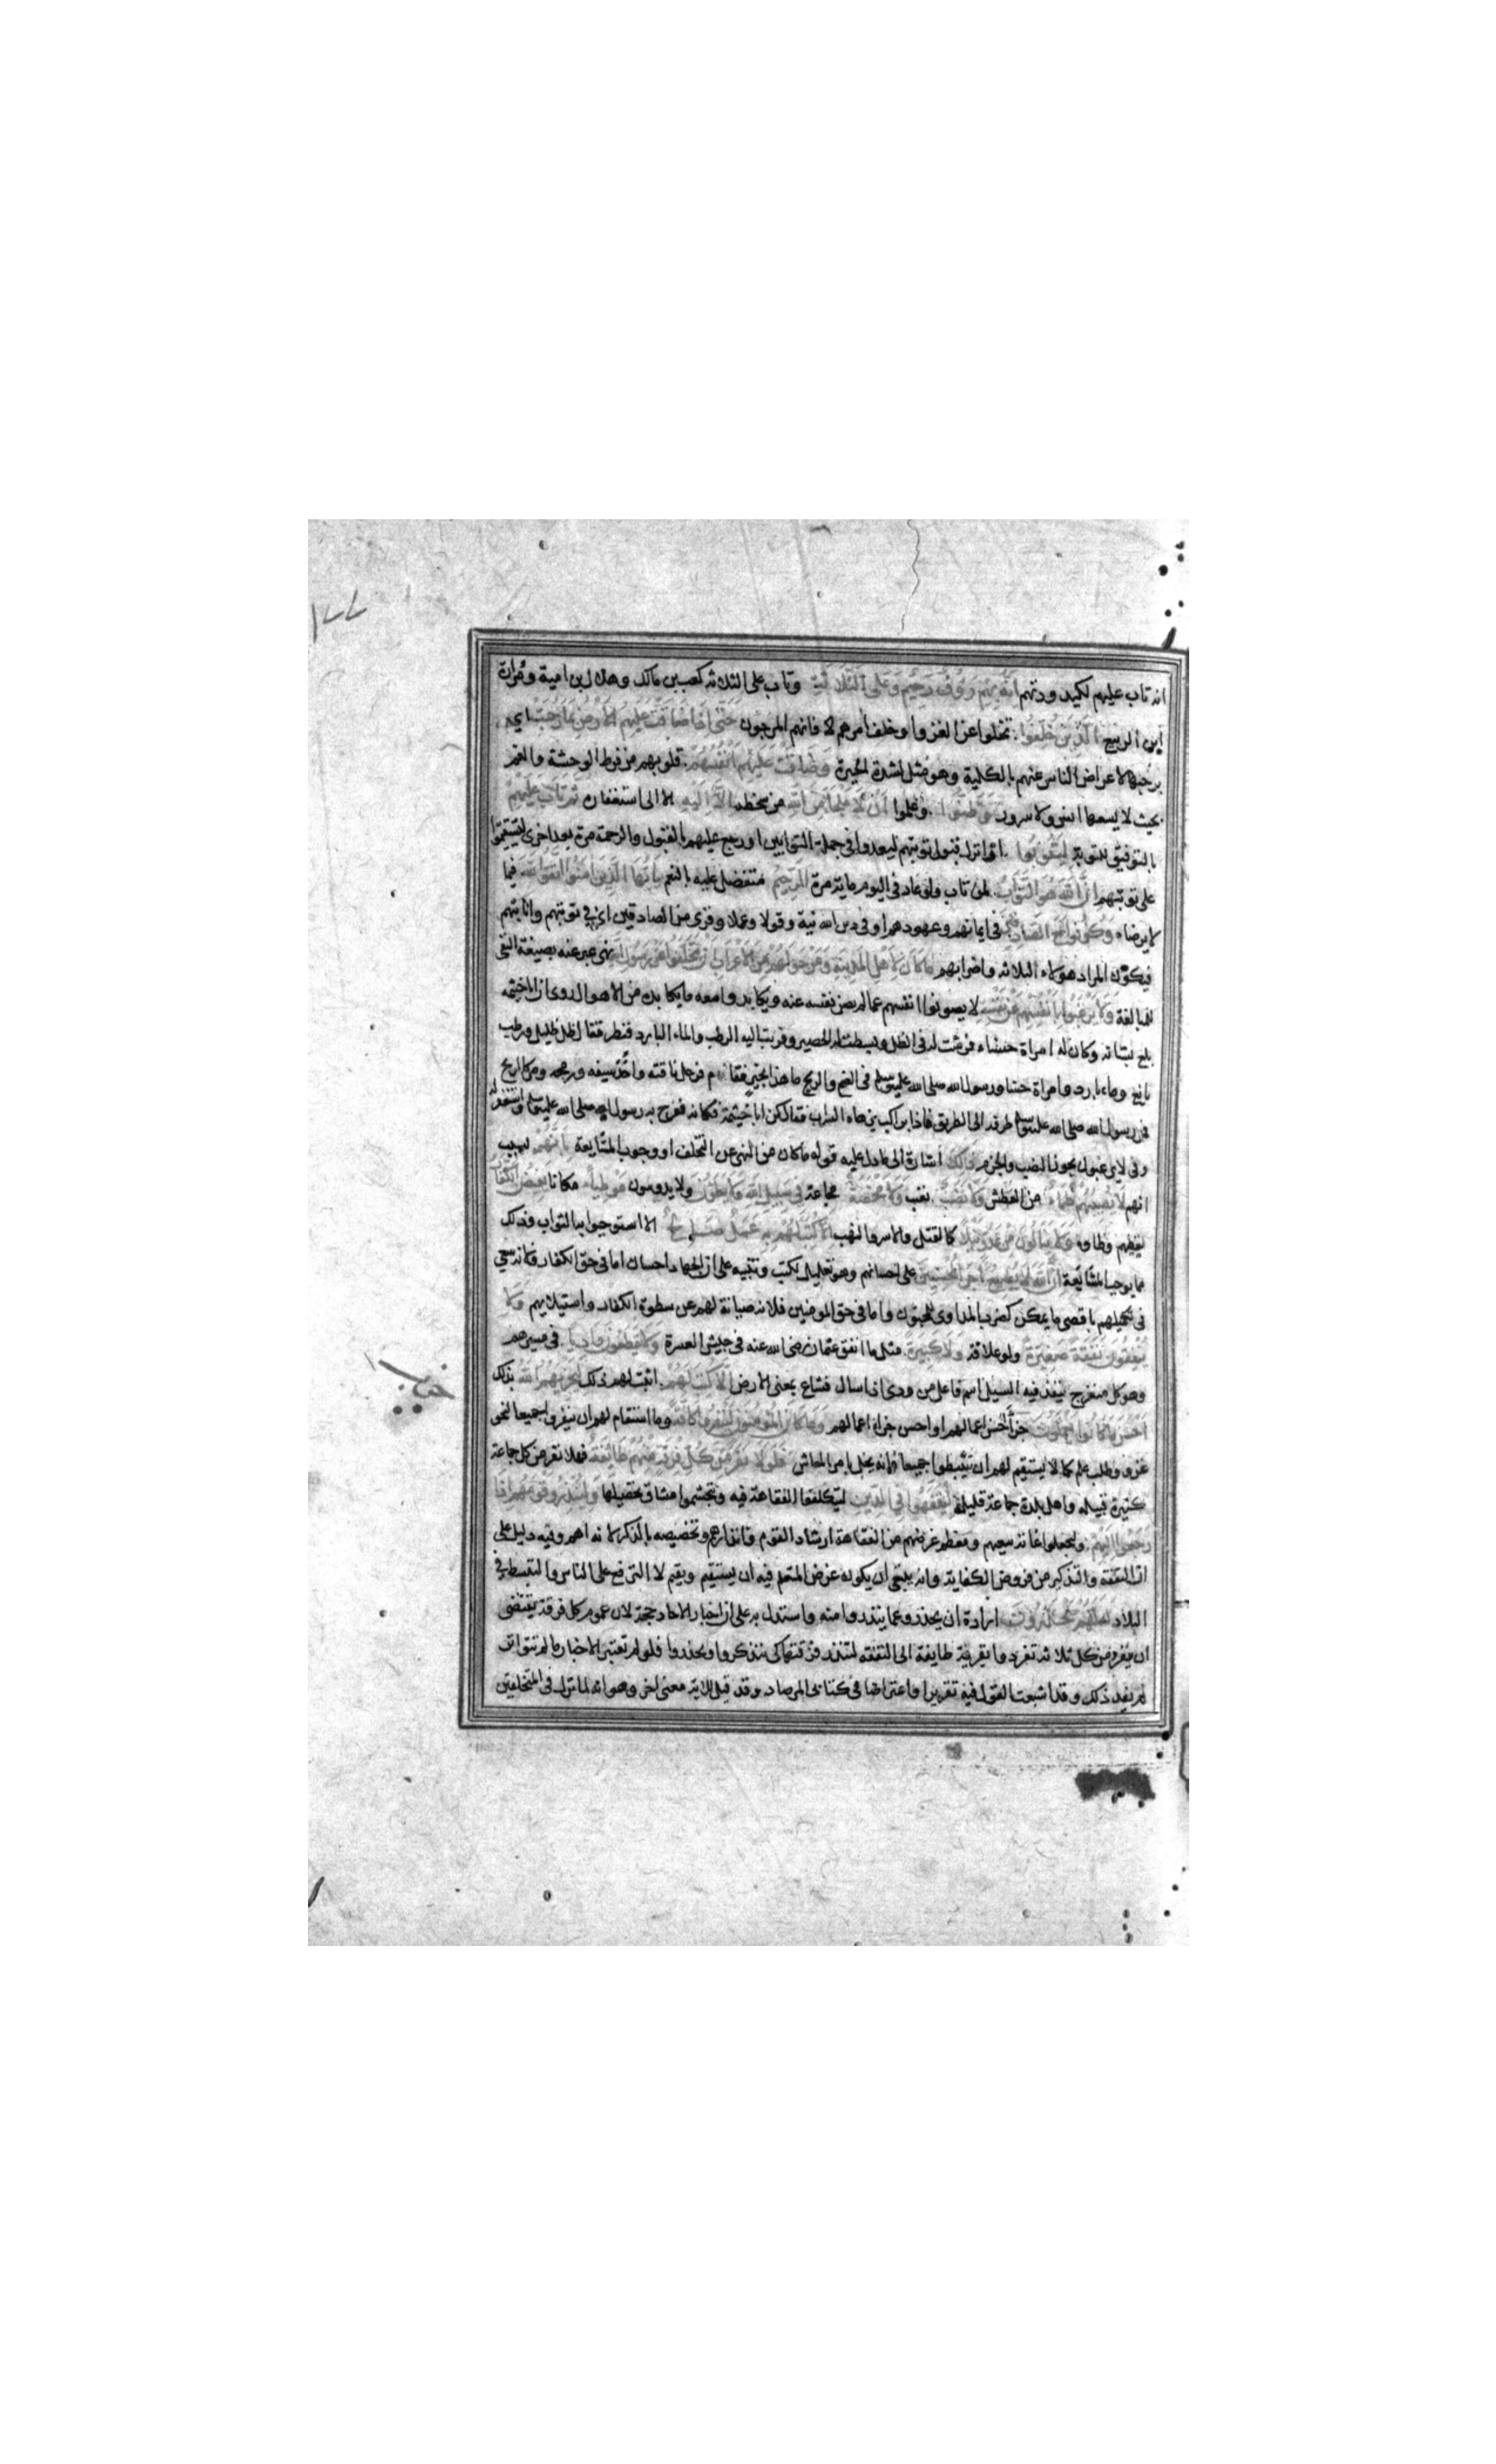 ١٧٧
انه تاب عليهم لكيد ودتهم انه بهم رؤف رحيم وعلى الثلاثة وتاب على الثلاثة كعب بن مالك وهلال بن امية ومرارة
ابن الربيع الذين خلفوا تخلفوا عن الغزو او خلف امرهم لا فانهم المرجون حتى اذا ضاقت عليهم الارض بما رحبت اي
برحبها لاعراض الناس عنهم بالكلية وهو مثل لشدة الحيرة وضاقت عليهم انفسهم قلوبهم من فرط الوحشة والغم
بحيث لا يسعها انس ولا سرور وظنوا وعلموا ان لا ملجا من الله من سخطه الا اليه الا الى استغفان ثم تاب عليهم
بالتوفيق للتوبة ليتوبوا او انزل قبول توبتهم ليعدوا في جملة التوابين او رجع عليهم بالقبول والرحمة مرة بعد اخرى ليستقيموا
على توبتهم ان الله هو التواب لمن تاب ولو عاد في اليوم ماية مرة الرحيم متفضل عليه بالنعم يايها الذين امنوا اتقوا الله فيما
لا يرضاه وكونوا مع الصادقين في ايمانهم وعهودهم او في دين الله نية وقولا وعملا وقرى من الصادقين اي في توبتهم وانابتهم
فيكون المراد هولاء الثلاثه واضرابهم ما كان لاهل المدينة ومن حولهم من الاعراب ان يتخلفوا عن رسول الله نهى عبر عنه بصيغة النفي
للمبالغة ولا يرغبوا بانفسهم عن نفسه لا يصونوا انفسهم عما لم يصن نفسه عنه ويكابدوا معه ما يكابده من الاهوال روى ان اباخيثمه
بلغ بستانه وكان له امراة حسناء فرشت له في الظل وبسطت له الحصير وقربت اليه الرطب والماء البارد فنظر فقال ظل ظليل ورطب
يانع وماء بارد وامراة حسنا ورسول الله صلى الله عليه وسلم في الضح والريح ما هذا بخير فقام فرحل ناقته واخذ سيفه ورمحه ومر كالريح
فمد رسول الله صلى الله عليه وسلم طرفه الى الطريق فاذا براكب يزهاه السراب فقال كن اباخيثمة فكانه ففرح به رسول الله صلى الله عليه وسلم واستغفر له
وفى لا يرغبوا يجوز النصب والجزم ذلك اشارة الى ما دل عليه قوله ما كان من النهي عن التخلف او وجوب المشايعة بانهم بسبب
انهم لا يصيبهم ظماء من العطش ولا نصب تعب ولا مخمصة مجاعة في سبيل الله ولا يطؤن ولا يدوسون موطيا مكانا يغيظ الكفار
يغيظهم وطاوه ولا ينالون من عدو نيلا كالقتل والاسر والنهب الا كتب لهم به عمل صالح الا استوجبوا به الثواب وذلك
مما يوجب المشايعة ان الله لا يضيع اجر المحسنين على احسانهم وهو تعليل لكتب وتنبيه على ان الجهاد احسان اما في حق الكفار فلانه سعى
في تكميلهم باقصى ما يمكن كضرب المداوى للمجنون واما في حق المومنين فلانه صيانة لهم عن سطوة الكفار واستيلايهم ولا
ينفقون نفقة صغيرة ولو علاقة ولا كبيرة مثل ما انفق عثمان رضى الله عنه في جيش العسرة ولا يقطعون واديا في مسيرهم
وهو كل منفرج ينفذ فيه السيل اسم فاعل من ودى اذا سال فشاع بمعنى الارض الا كتب لهم اثبت لهم ذلك ليجزيهم الله بذلك
احسن ما كانوا يعملون جزاء احسن اعمالهم او احسن جزاء اعمالهم وما كان المؤمنون لينفروا كافة وما استقام لهم ان ينفروا جميعا لنحو
غزو وطلب علم كما لا يستقيم لهم ان يتثبطوا جميعا فانه يخل بامر المعاش فلولا نفر من كل فرقة منهم طايفة فهلا نفر من كل جماعة
كثيرة قبيله واهل بلدة جماعة قليلة ليتفقهوا في الدين ليتكلفوا الفقاهة فيه وتجشموا مشاق تحصيلها ولينذروا قومهم اذا
رجعوا اليهم وليجعلوا غاية سعيهم ومعظم غرضهم من الفقاهة ارشاد القوم وانذارهم وتخصيصه بالذكر لانه اهم وفيه دليل على
ان التفقه والتذكير من فروض الكفاية وانه ينبغي ان يكون غرض المتعلم فيه ان يستقيم ويقيم لا الترفع على الناس والتبسط في
البلاد لعلهم يحذرون ارادة ان يحذروا عما ينذروا منه واستدل به على ان اخبار الاحاد حجة لان عموم كل فرقة يقتضى
ان ينفر من كل ثلاثة تفردوا بقرية طايفة الى التفقه لتنذر فرقتها كي يتذكروا ويحذروا فلو لم تعتبر الاخبار ما لم تتواتر
لم يفد ذلك وقد اشبعت القول فيه تقريرا واعتراضا في كتابي المرصاد وقد قيل للاية معنى اخر وهو انه لما نزل في المتخلفين